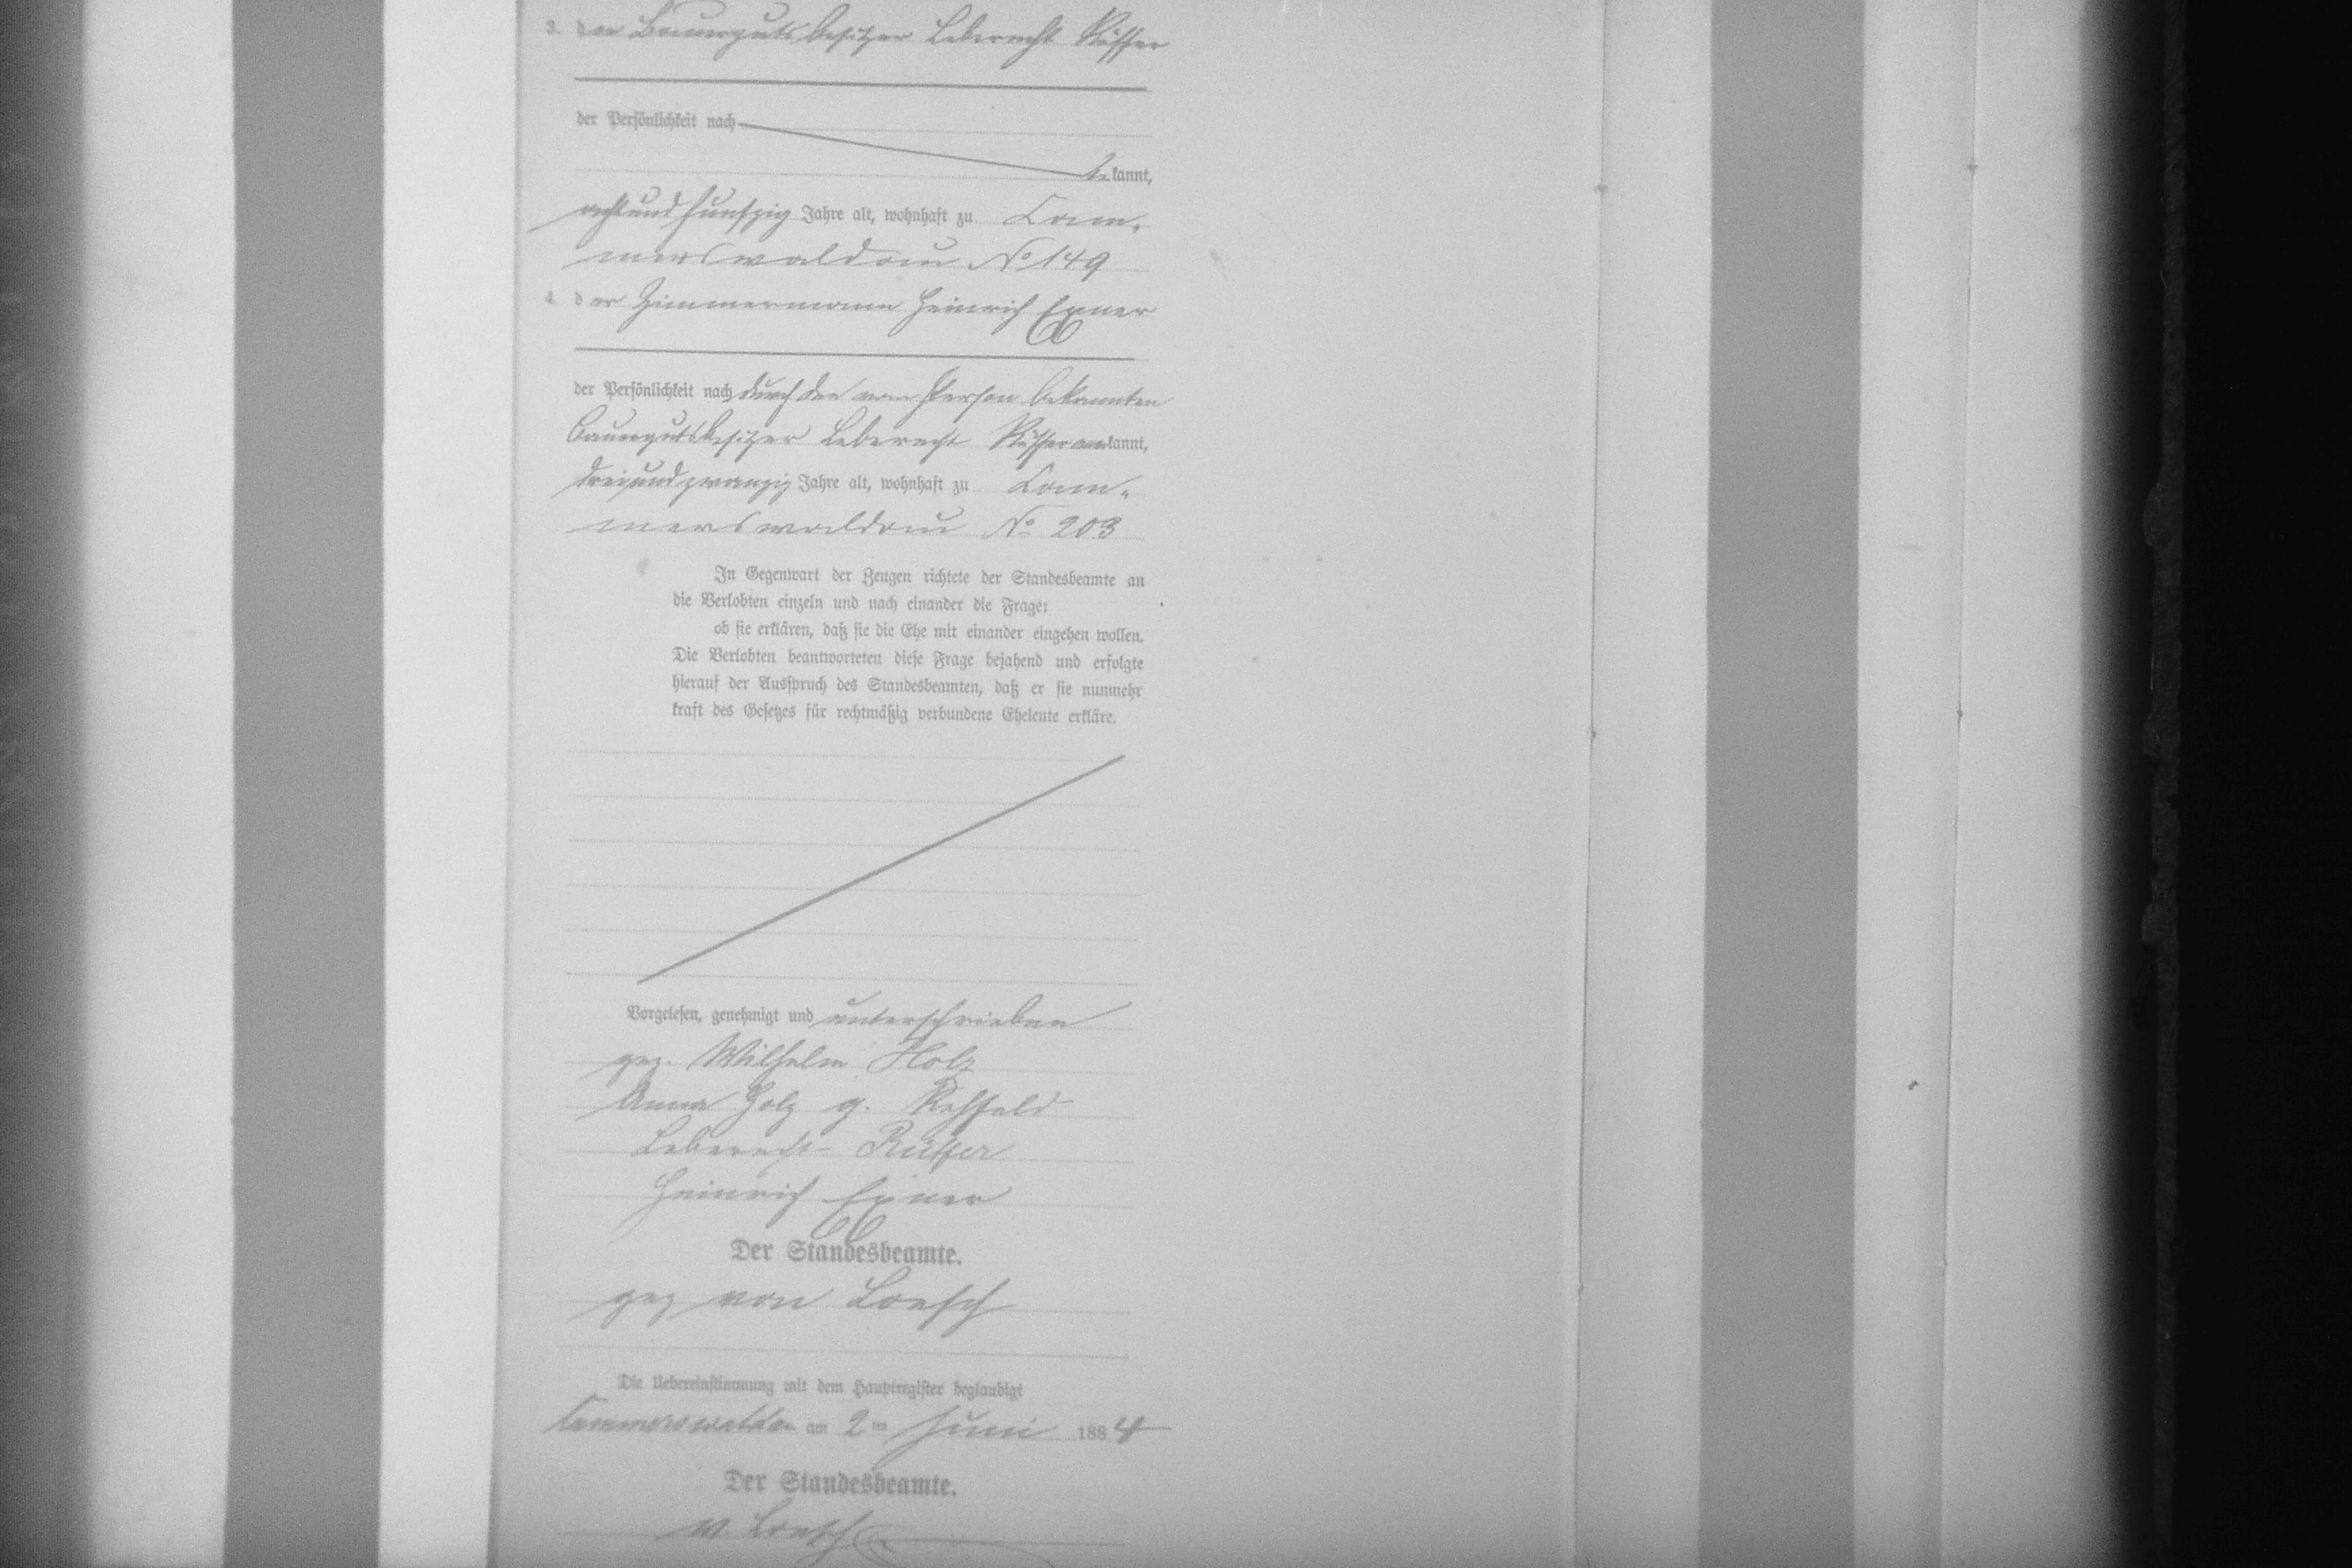 3. der Bauergutsbesitzer Leberecht Rüffer
der Persönlichkeit nach
be kannt,
achtundfunfzig Jahre alt, wohnhaft zu Kam-
merswaldau No 149
4. der Zimmermann Heinrich Exner
der Persönlichkeit nach durch den von Person bekannten
Bauergutsbesitzer Leberecht Rüffer anerkannt,
dreiundzwanzig Jahre alt, wohnhaft zu Kam-
merswaldau No 203
In Gegenwart der Zeugen richtete der Standesbeamte an
die Verlobten einzeln und nach einander die Frage:
ob sie erklären, daß sie die Ehe mit einander eingehen wollen.
Die Verlobten beantworteten diese Frage bejahend und erfolgte
hierauf der Ausspruch des Standesbeamten, daß er sie nunmehr
kraft des Gesetzes für rechtmäßig verbundene Eheleute erkläre.
Vorgelesen, genehmigt und unterschrieben
gez. Wilhelm Holz
Anna Holz g. Rehfeld
Leberecht Rüffer
Heinrich Exner
Der Standesbeamte.
gez von Loesch
Die Uebereinstimmung mit dem Hauptregister beglaubigt
Kammerswaldau am 2ten Juni 1884
Der Standesbeamte.
v. Loesch